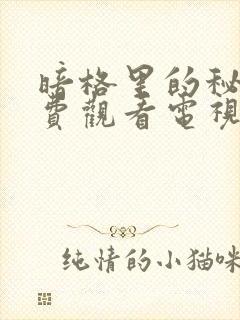 暗格里的秘
費觀看電視
纯情的小猫咪